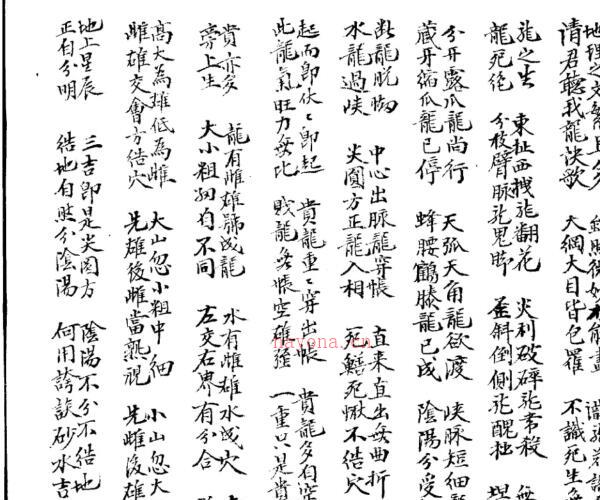 地理之文繁且多
請君聽我龍決歌 大綱大目皆包羅 不識死生
龍之生 東扯西拽龍翻花 尖利破碎龍帶殺
龍死絕 分枝臂脉龍鬼 歪斜倒側龍醜拙
分牙露爪龍尚行 天弧天角龍欲渡 峡脉短細
藏牙縮爪龍已停 蜂腰鶴膝龍已成 陰陽分受
龍脫 中心出脉龍穿帳 直来直出毋曲折
水龍過峡 尖圓方正龍入相 死鱔死不结穴
起而卽伏〻卽起 貴龍重〻穿出帳 貴龍多有穿
此龍氣旺力無比 賤龍無帳空雄强 一重只是貴
貴亦多 龍有雌雄成龍 水有雌雄水成穴
旁上生 大小粗細有不同 左交右界有分合
高大為雄低為雌 大山忽小粗中細 小山忽大
雌雄交會方结穴 先雄後雌當熟視 先雌後雄
地上星辰 三吉卽是尖圓方 陰陽不分不结地
正自分明 结地自然分陰陽 何用誇談砂水吉
nayona.cn